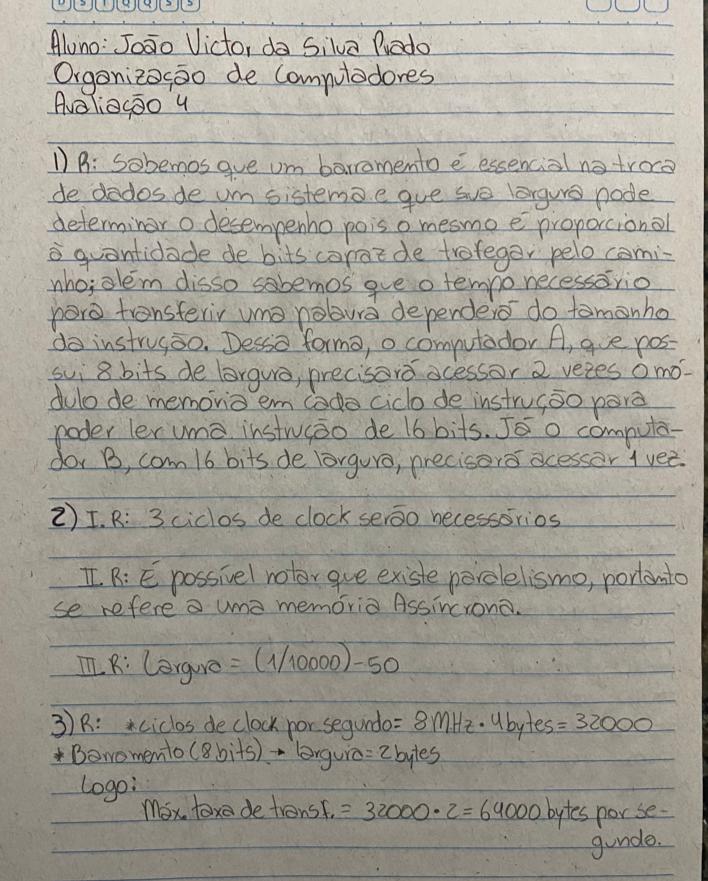 D S T Q Q S S
Aluno: João Victor da Silva Prado
Organização de Computadores
Avaliação 4
1) R: Sabemos que um barramento é essencial na troca
de dados de um sistema e que sua largura pode
determinar o desempenho pois o mesmo é proporcional
à quantidade de bits capaz de trafegar pelo cami-
nho; além disso sabemos que o tempo necessário
para transferir uma palavra dependerá do tamanho
da instrução. Dessa forma, o computador A, que pos-
sui 8 bits de largura, precisará acessar 2 vezes o mó-
dulo de memória em cada ciclo de instrução para
poder ler uma instrução de 16 bits. Já o computa-
dor B, com 16 bits de largura, precisará acessar 1 vez.
2) I. R: 3 ciclos de clock serão necessários
II. R: É possível notar que existe paralelismo, portanto
se refere a uma memória Assíncrona.
III. R: Largura = (1/10000)-50
3) R: *ciclos de clock por segundo = 8MHz • 4bytes = 32000
* Barramento (8 bits) → largura = 2 bytes
Logo:
Máx. taxa de transf. = 32000 • 2 = 64000 bytes por se-
gundo.